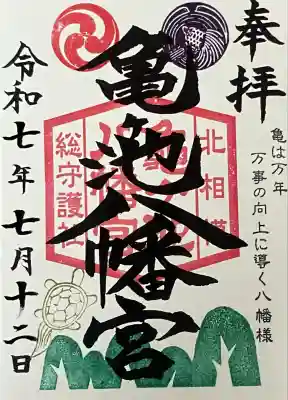 奉拝
亀は万年
万事の向上に導く八幡様
亀ヶ池八幡宮
北相模
総守護社
令和七年七月十二日